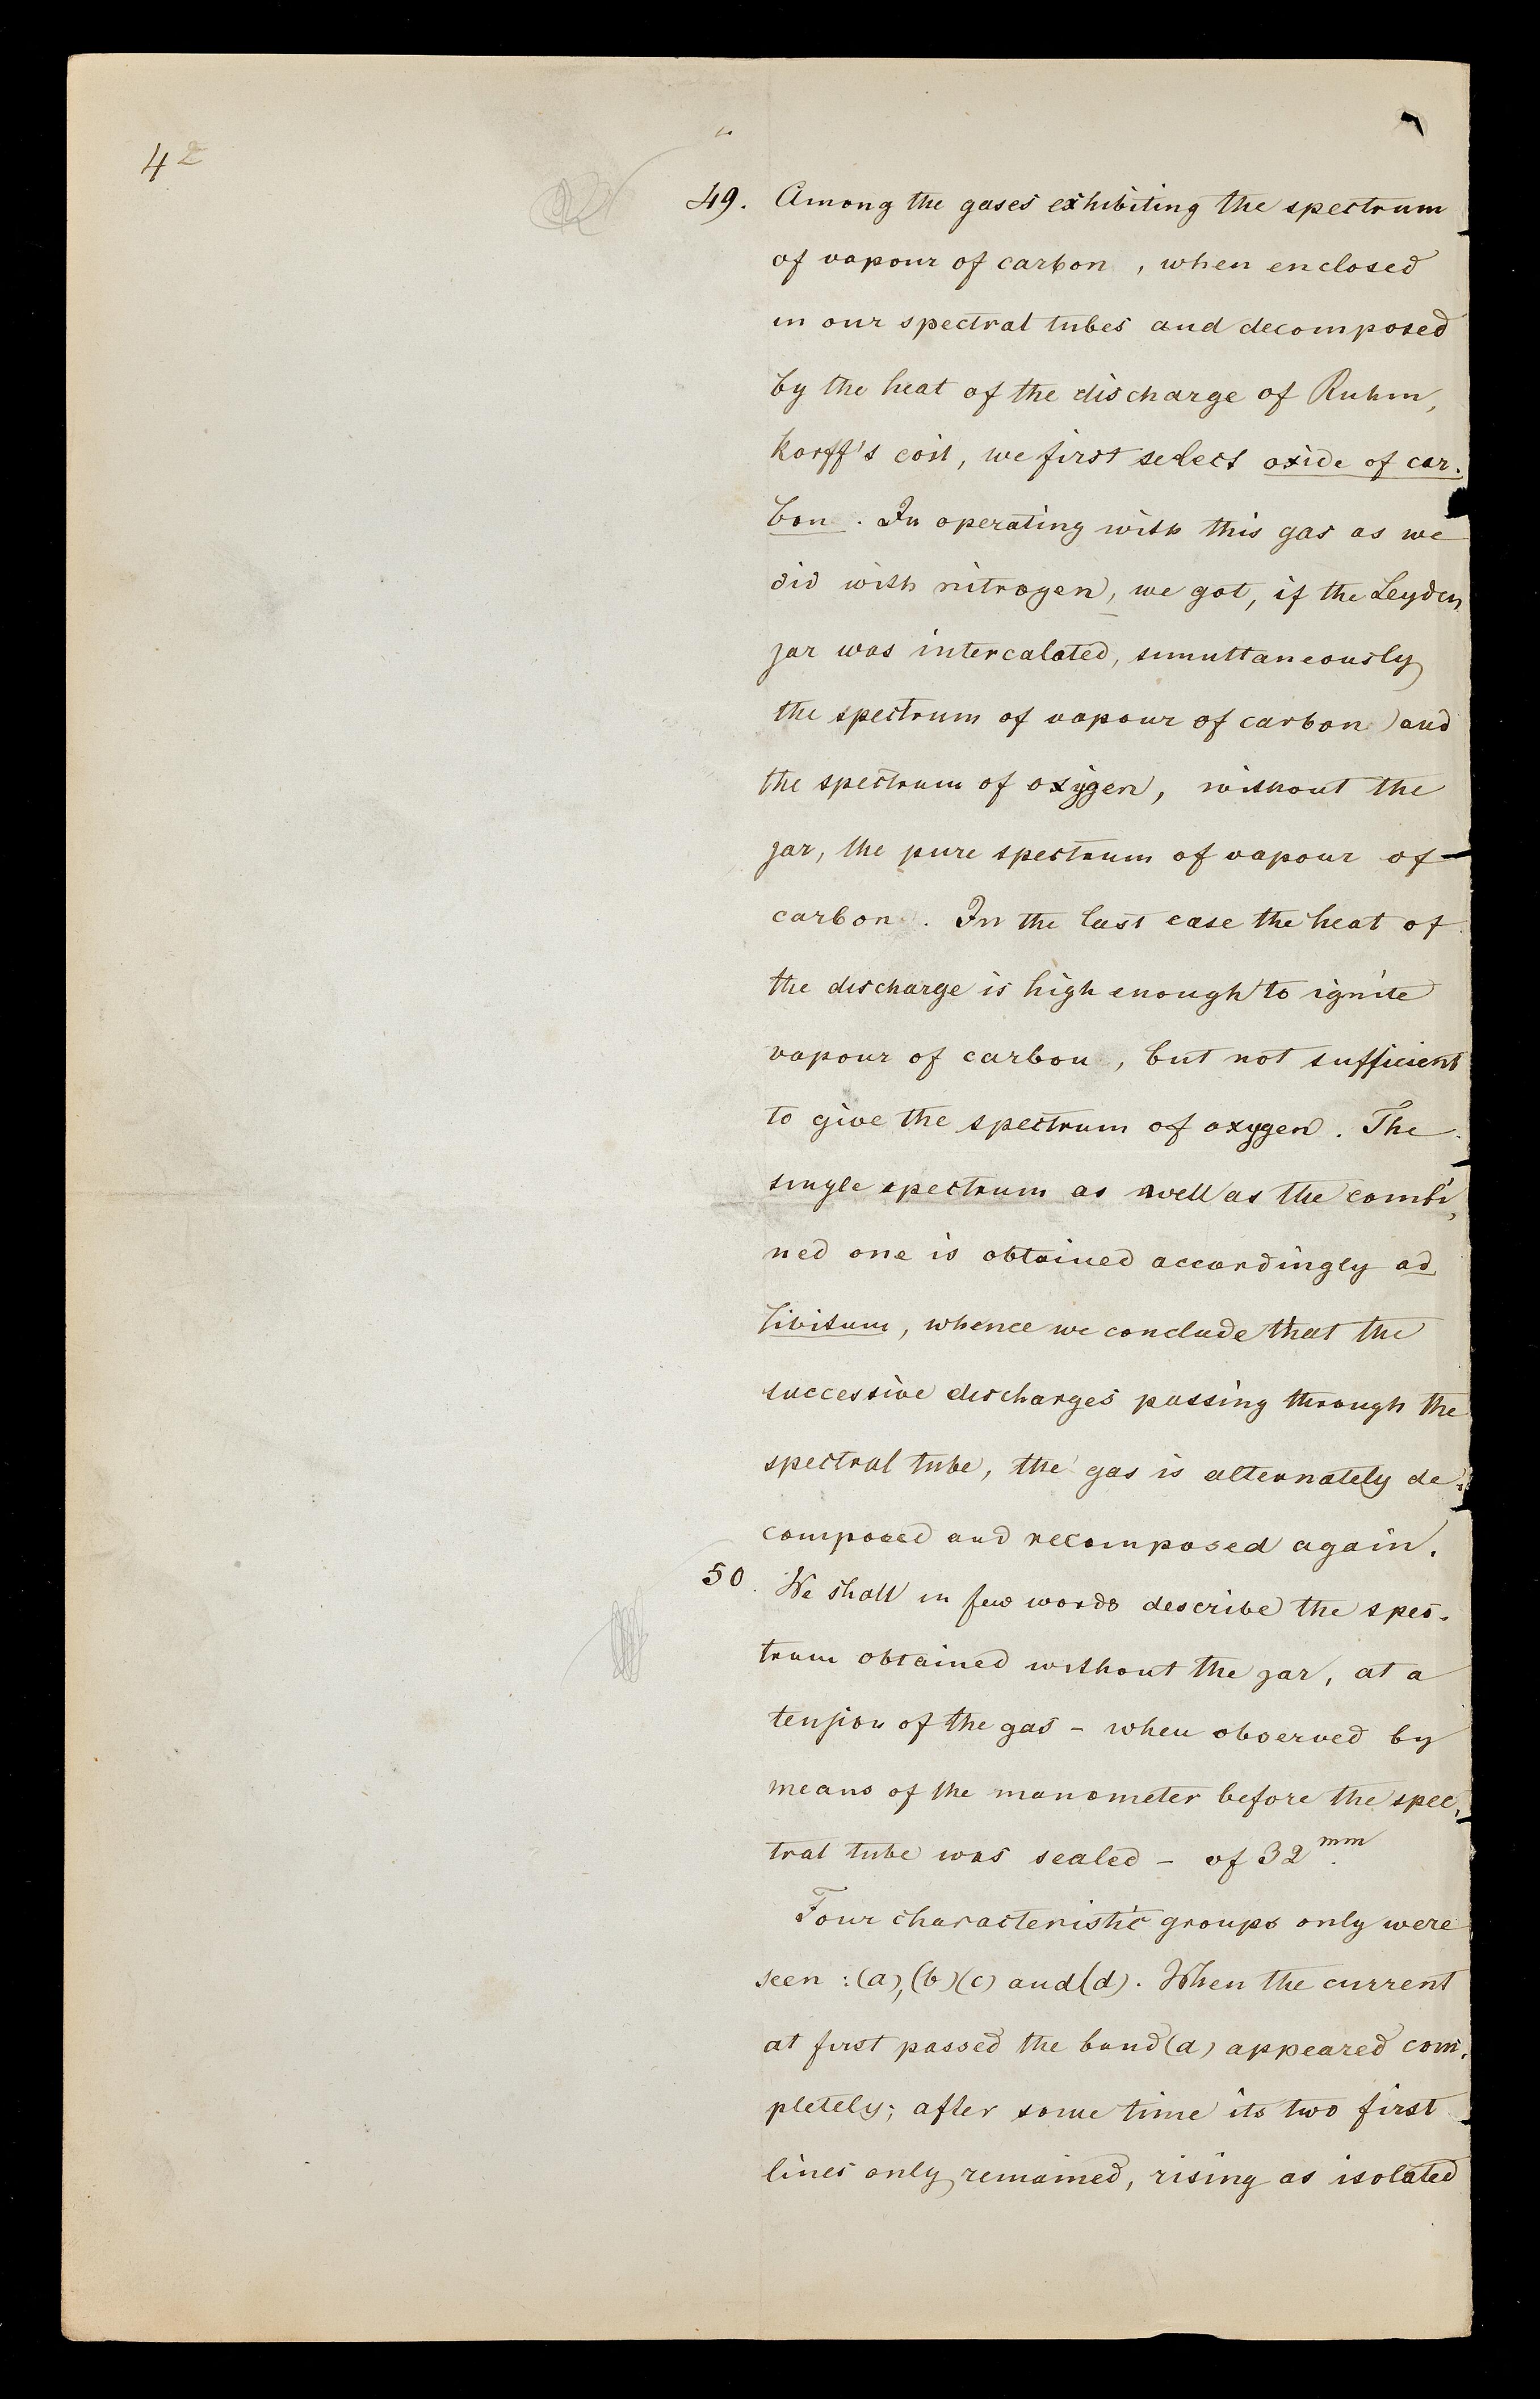 42
49. Among the gases exhibiting the spectrum
of vapour of carbon , when enclosed
in our spectral tubes and decomposed
by the heat of the discharge of Ruhm,
korff's coil, we first select oxide of car.
bon . In operating with this gas as we
did with nitrogen, we got, if the Leyden
jar was intercalated, simultaneously
the spectrum of vapour of carbon and
the spectrum of oxygen, without the
jar, the pure spectrum of vapour of
carbon . In the last case the heat of
the discharge is high enough to ignite
vapour of carbon , but not sufficient
to give the spectrum of oxygen. The
single spectrum as well as the combi,
ned one is obtained accordingly ad
libitum, whence we conclude that the
successive discharges passing through the
spectral tube, the gas is alternately de.
composed and recomposed again.
50. We shall in few words describe the spec.
trum obtained without the jar, at a
tension of the gas – when observed by
means of the manometer before the spec,
tral tube was sealed – of 32 mm.
Four characteristic groups only were
seen : (a), (b) (c) and (d). When the current
at first passed the band (a) appeared com.
pletely; after some time its two first
lines only remained, rising as isolated